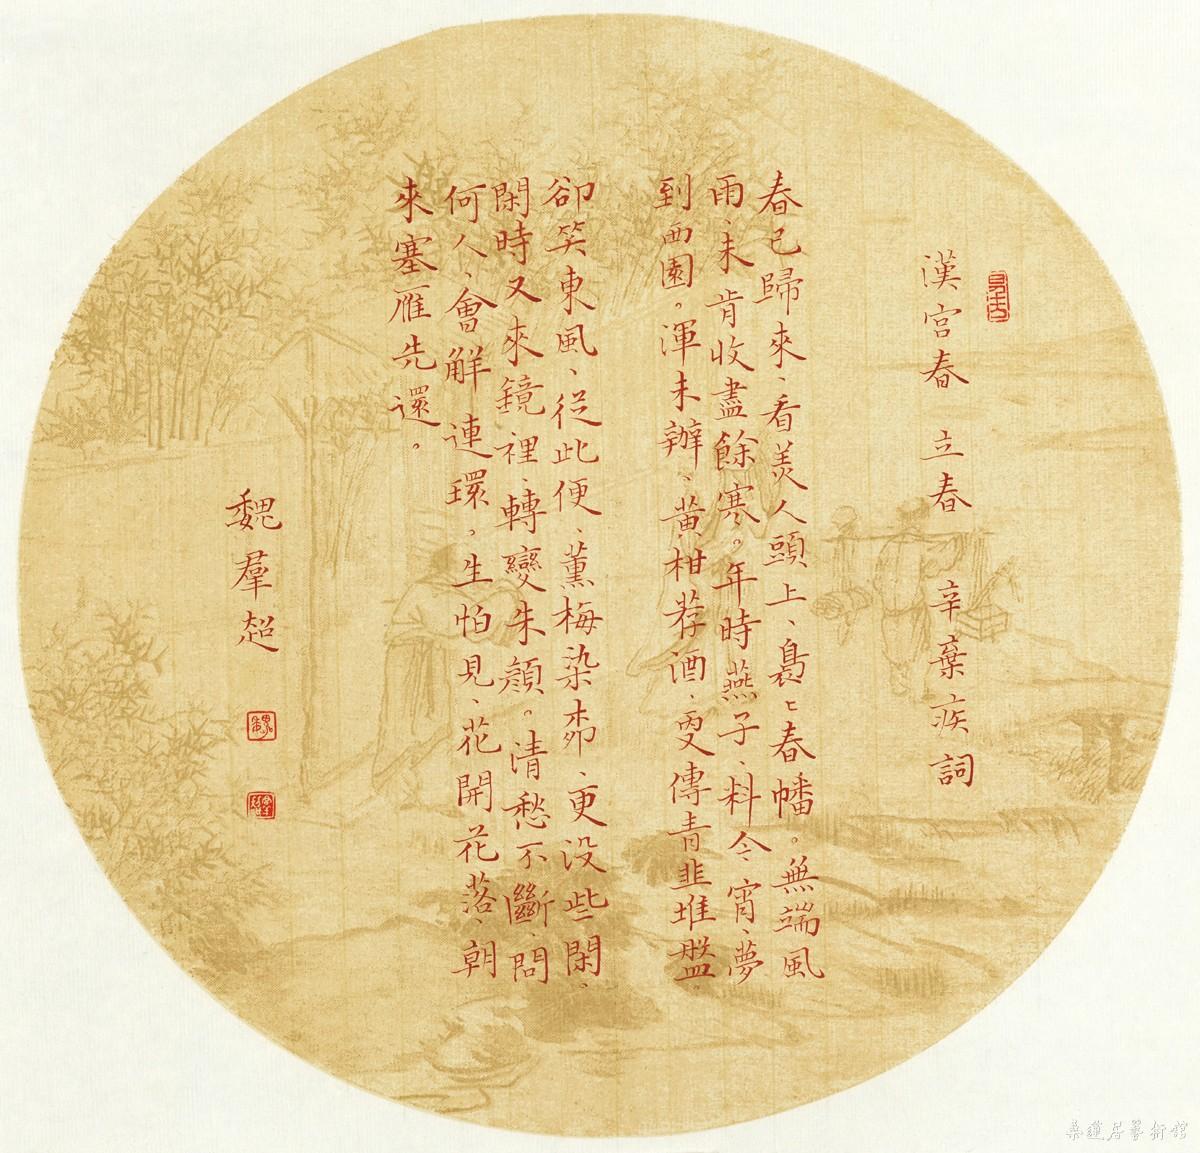 漢宮春 立春 辛棄疾詞
春已歸來、看美人頭上、裊〻春幡。無端風
雨、未肯收盡餘寒。年時燕子、料今宵、夢
到西園。渾未辦、黃柑荐酒、更傳青韭堆盤。
卻笑東風、從此便、薰梅染柳、更没些閑。
閑時又來鏡裡、轉變朱顏。清愁不斷、問
何人、會解連環。生怕見、花開花落、朝
來塞雁先還。
魏羣超